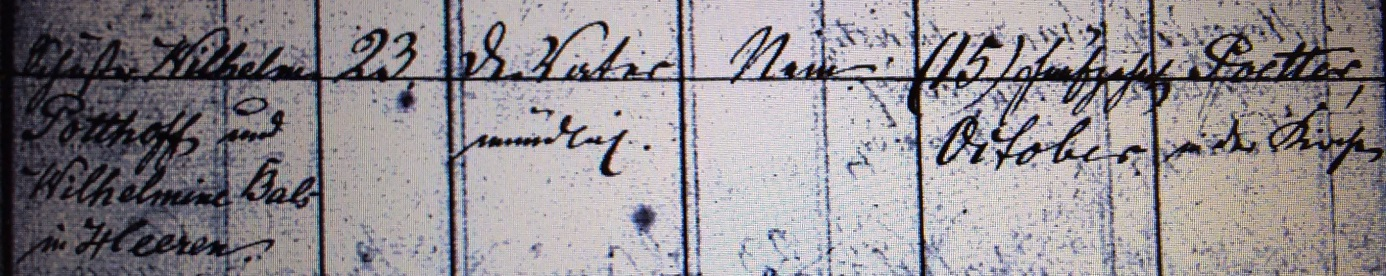 Schuster Wilhelm
Potthoff und
Wilhelmine Bals
in Heeren.
23.
Der Vater
mündlich.
Nein.
(15) fünfzehn
October
Poetter,
in der Kirche